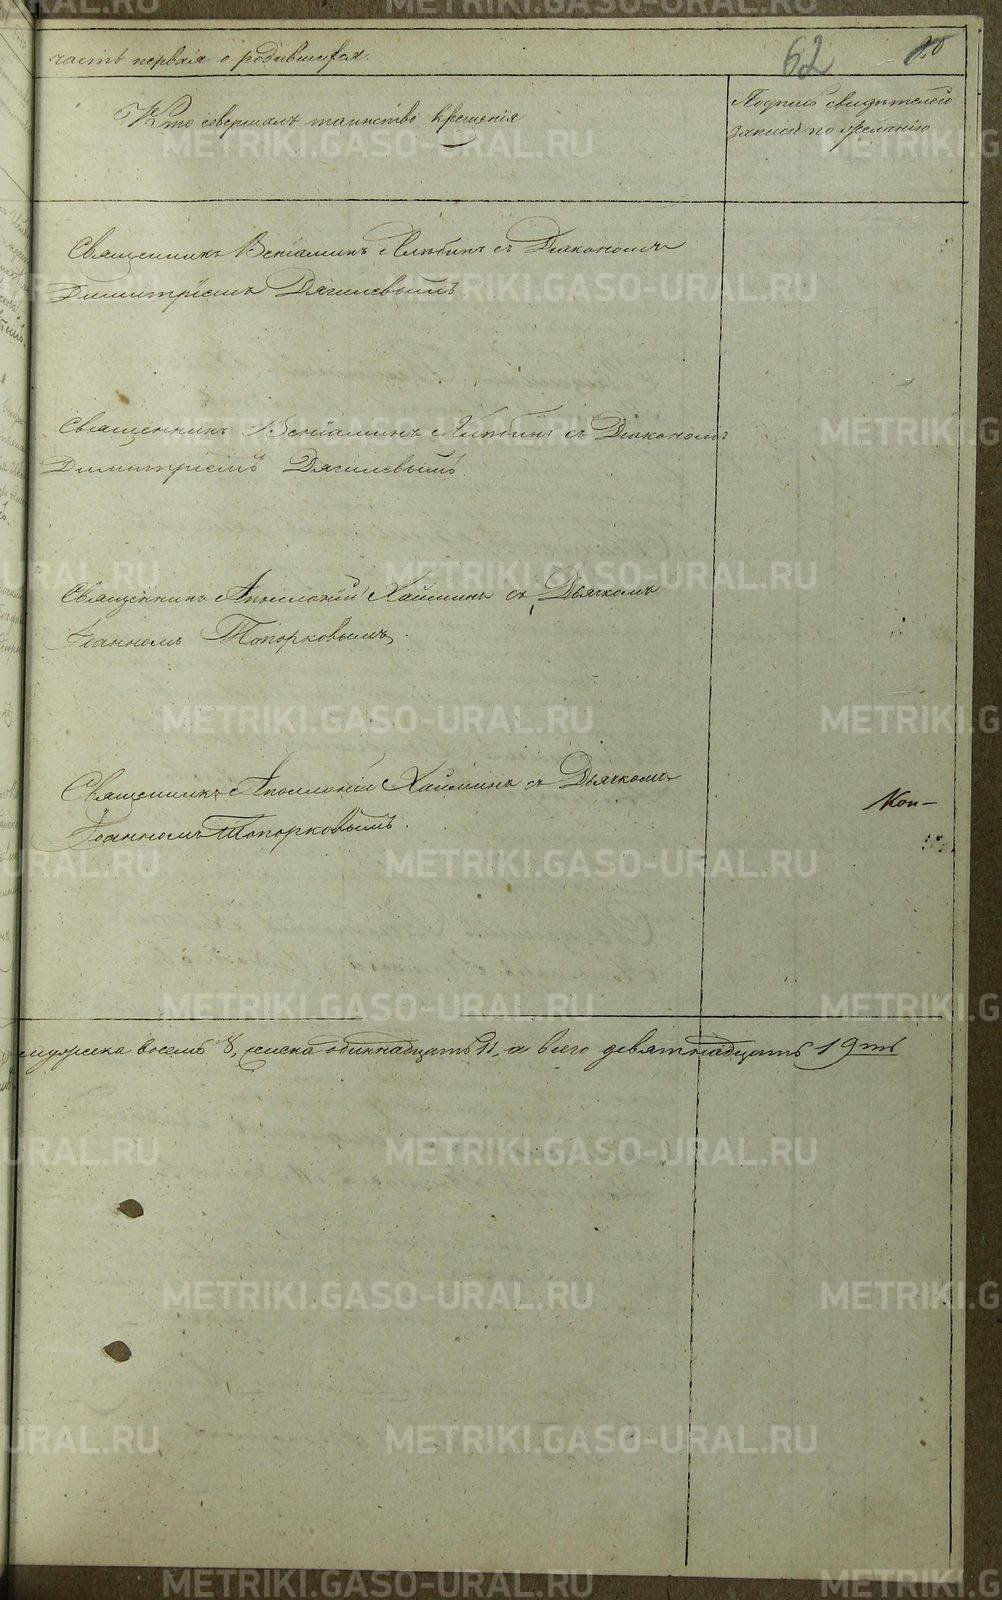 часть первая о родившихся.
62
Кто совершалъ таинство крещенія
Подпись свидѣтелей
записей по желанію
Священникъ Веніаминъ съ Діакономъ
Димитріемъ Дягилевымъ.
Священникъ Веніаминъ съ Діакономъ
Димитріемъ Дягилевымъ.
Священникъ Аполлоній Хайминъ съ Дьячкомъ
Іоанномъ Топорковымъ.
Священникъ Аполлоній Хайминъ съ Дьячкомъ
Іоанномъ Топорковымъ.
Коп-
мужеска восемь 8, женска одиннадцать 11, а всего девятнадцать 19ть
METRIKI.GASO-URAL.RU